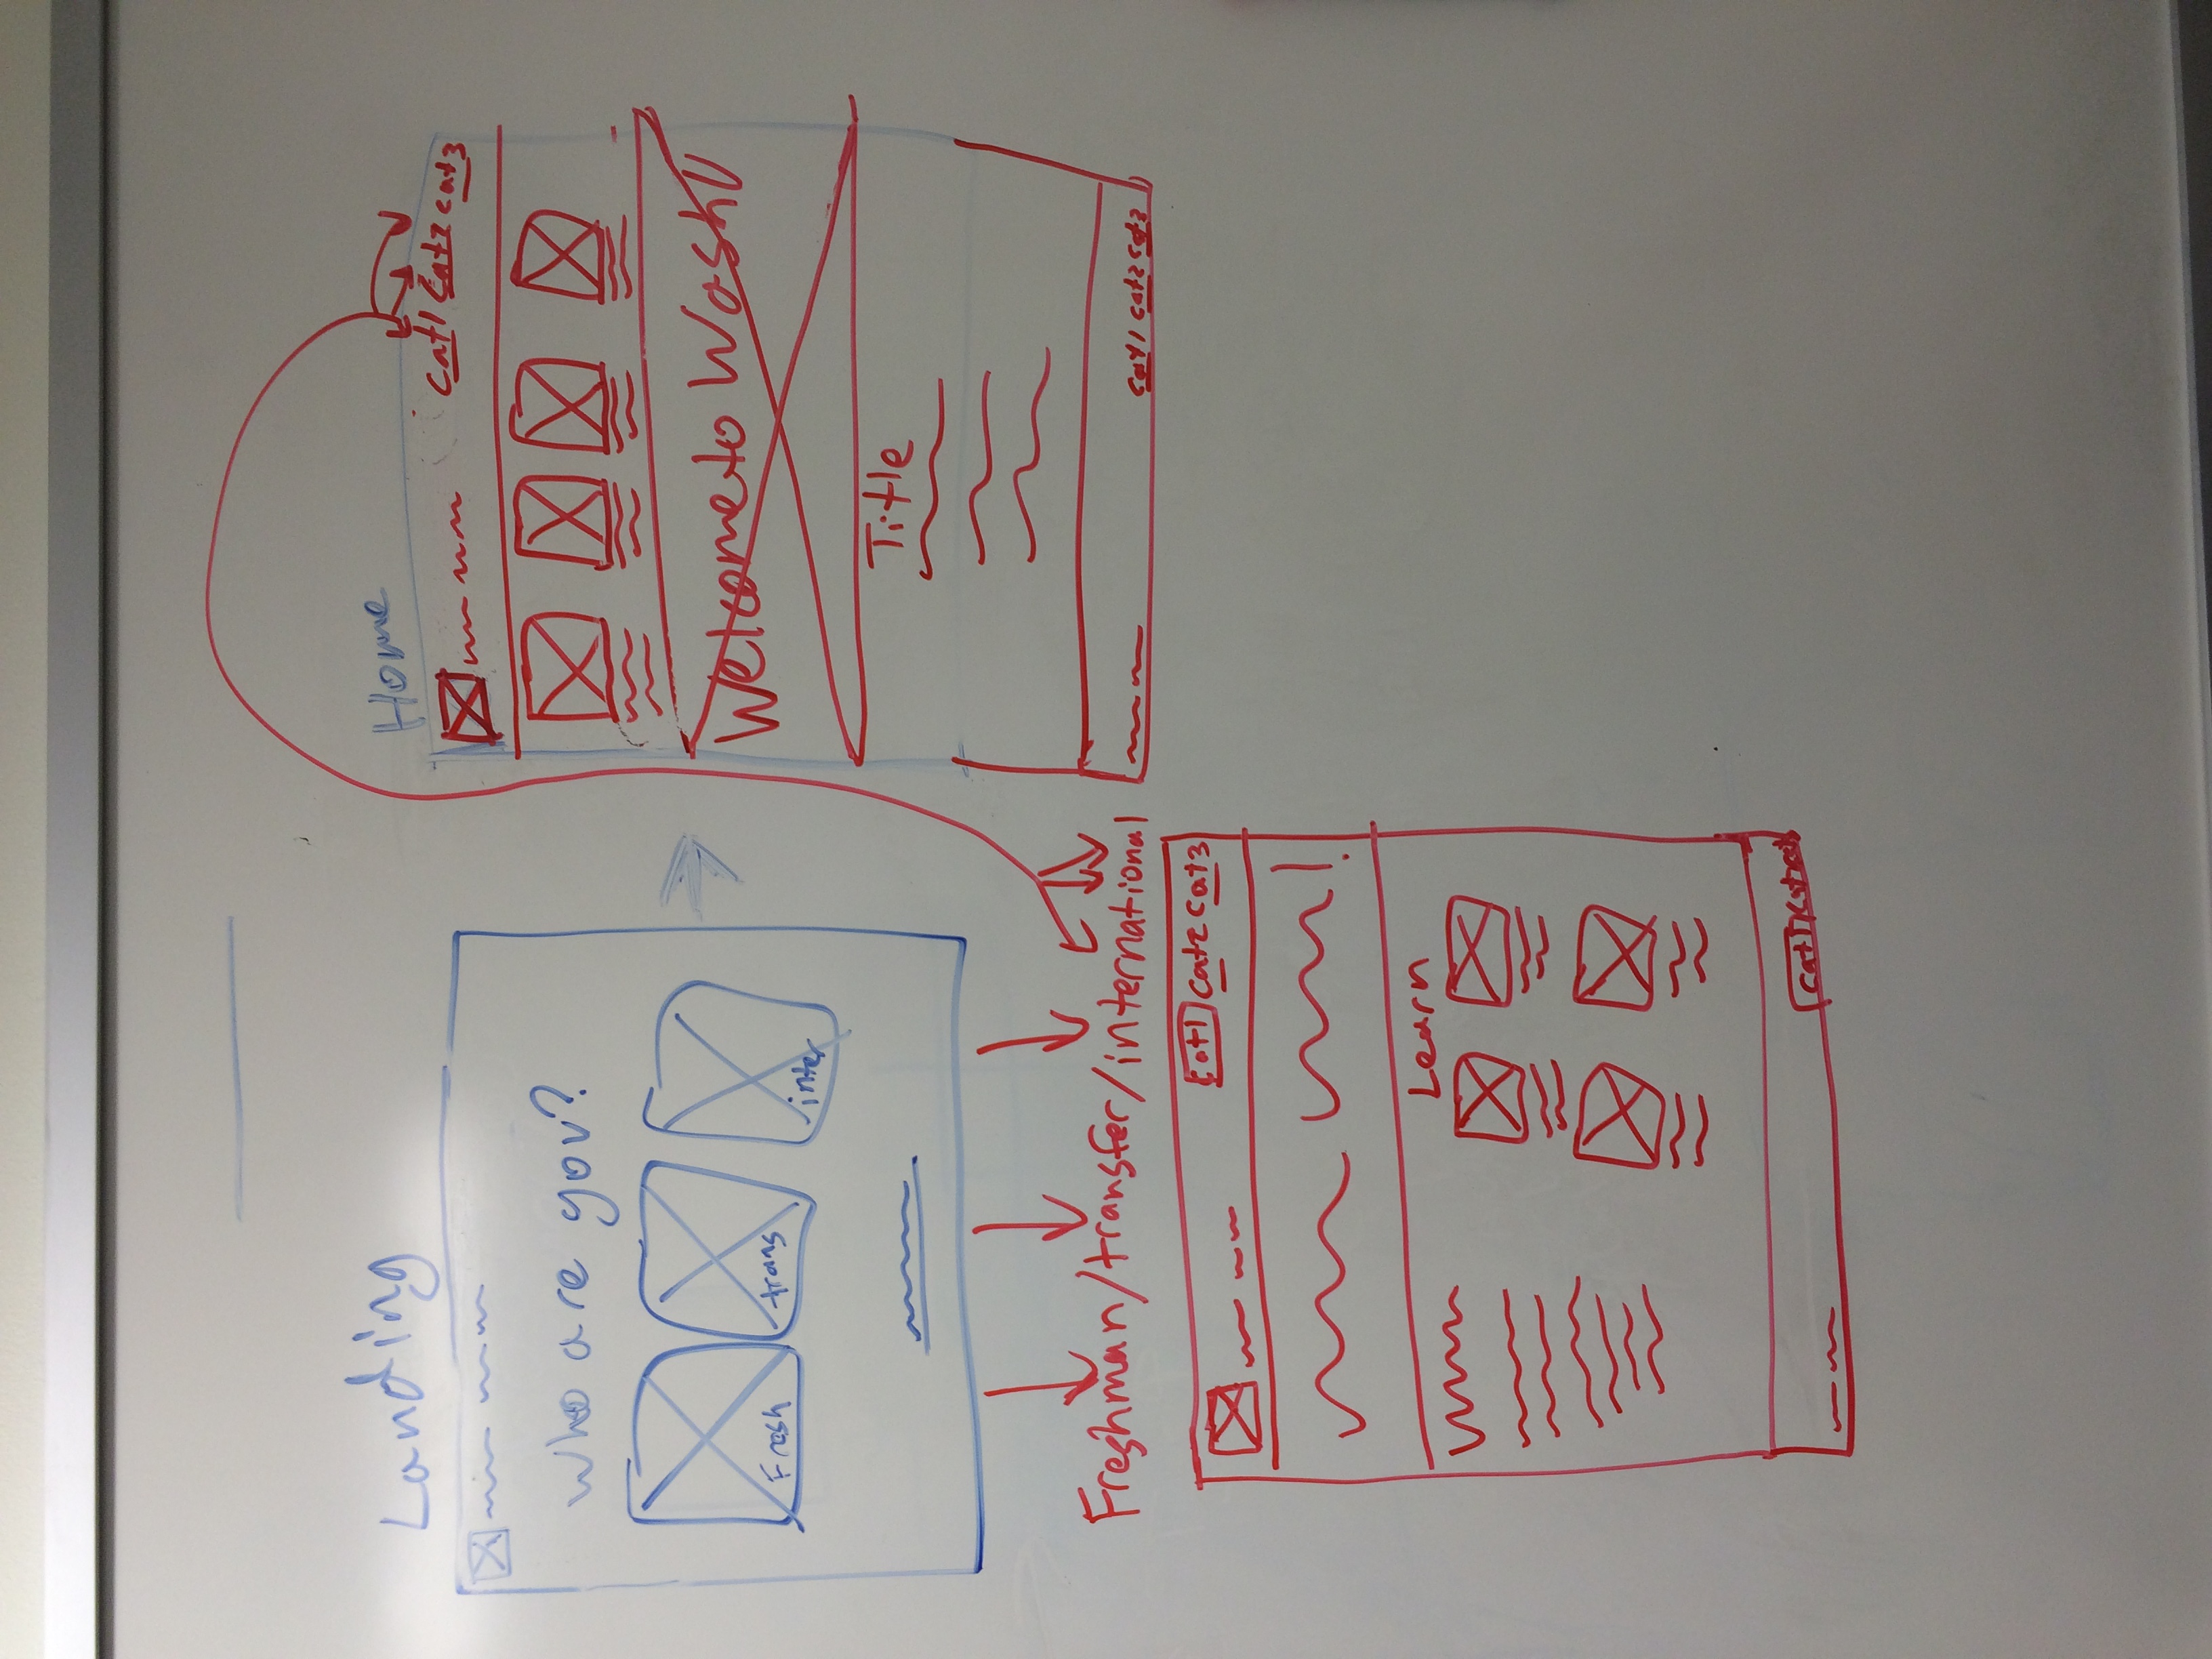 Landing
who are you?
Fresh
trans
inter
Home
cat1 cat2 cat3
Welcome to WashU
Title
cat1 cat2 cat3
Freshman/transfer/international
cat1 cat2 cat3
Learn
cat1